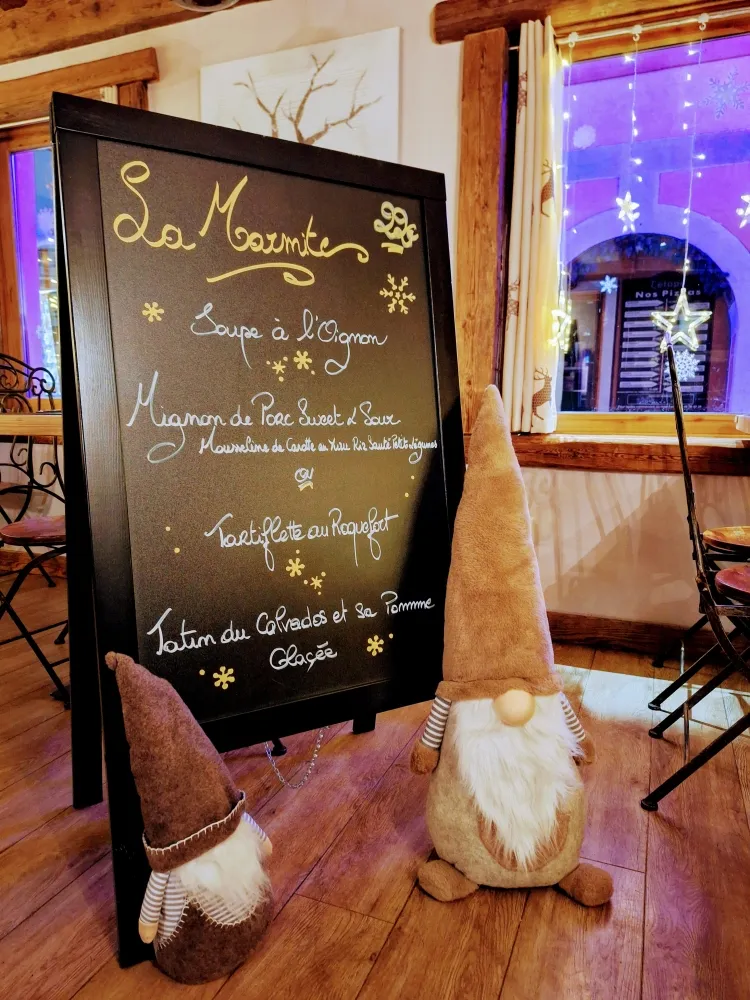 La Marmite
22€
Soupe à l'Oignon
Mignon de Porc Sweet & Sour
Mousseline de Carotte au Yuzu Riz Sauté Petits légumes
ou
Tartiflette au Roquefort
Tatin du Calvados et sa Pomme
Glaçée
Nos Pizzas